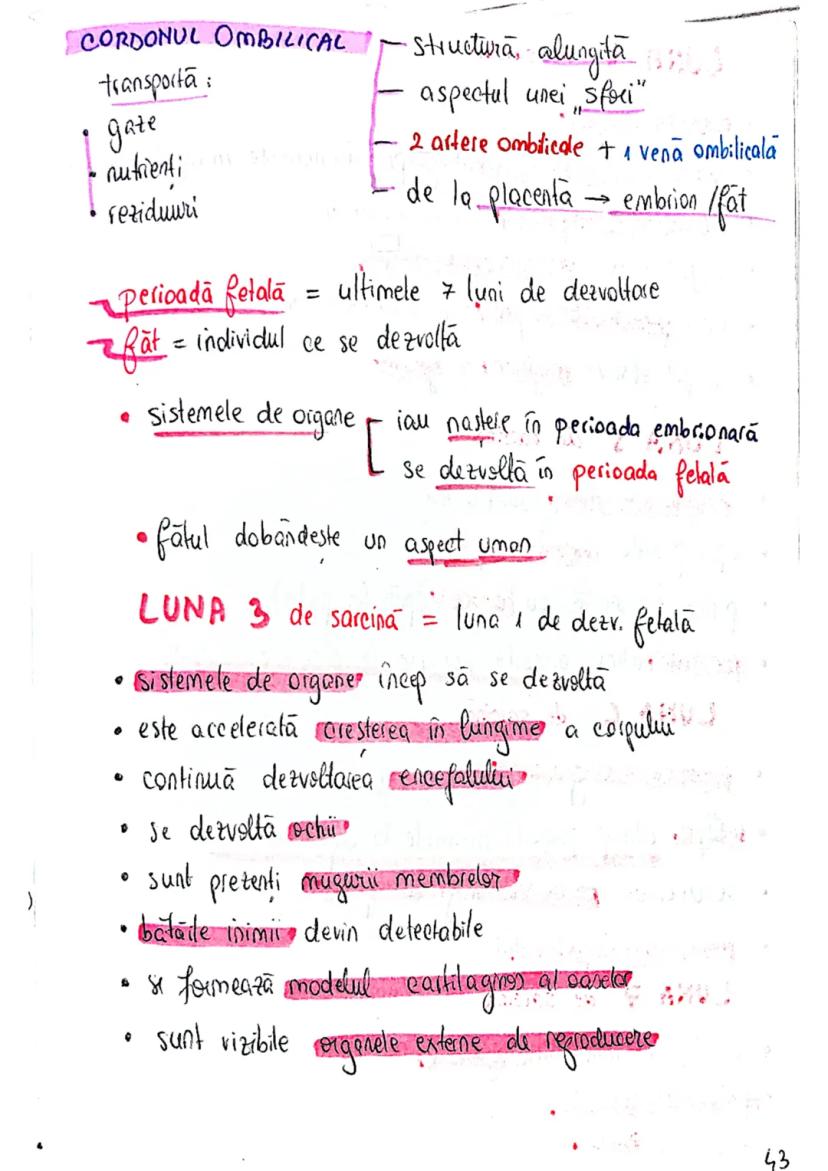 CORDONUL OMBILICAL
transportă :
• gaze
• nutrienți
• reziduuri
- structură alungită
- aspectul unei „sfori"
- 2 artere ombilicale + 1 venă ombilicală
- de la placentă → embrion / făt
perioadă fetală = ultimele 7 luni de dezvoltare
făt = individul ce se dezvoltă
• sistemele de organe - iau naștere în perioada embrionară
se dezvoltă în perioada fetală
• fătul dobândește un aspect uman
LUNA 3 de sarcină = luna 1 de dezv. fetală
• sistemele de organe încep să se dezvoltă
• este accelerată creșterea în lungime a corpului
• continuă dezvoltarea encefalului
• se dezvoltă ochii
• sunt prezenți mugurii membrelor
• bătăile inimii devin detectabile
• se formează modelul cartilaginos al oaselor
• sunt vizibile organele externe de reproducere
43